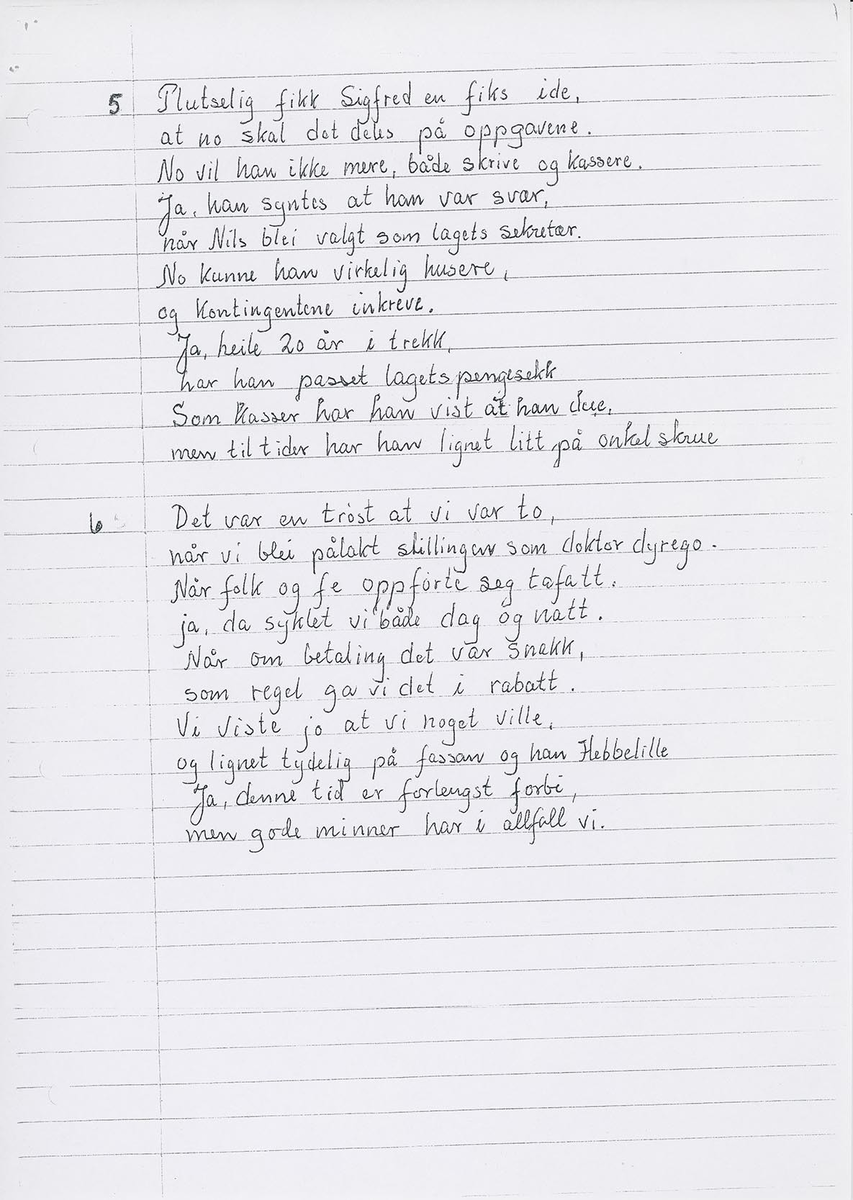 5 Plutselig fikk Sigfred en fiks ide,
at no skal det deles på oppgavene.
No vil han ikke mere, både skrive og kassere.
Ja, han syntes at han var svær,
når Nils blei valgt som lagets sekretær.
No kunne han virkelig husere,
og kontingentene inkreve.
Ja, heile 20 år i trekk,
har han passet lagets pengesekk
Som kasser har han vist at han due,
men til tider har han lignet litt på onkel skrue
6 Det var en trøst at vi var to,
når vi blei pålakt stillingen som doktor dyrego.
Når folk og fe oppførte seg tafatt.
ja, da syklet vi både dag og natt.
Når om betaling det var snakk,
som regel ga vi det i rabatt.
Vi viste jo at vi noget ville,
og lignet tydelig på fassan og han Hebbelille
Ja, denne tid er forlengst forbi,
men gode minner har i allfall vi.